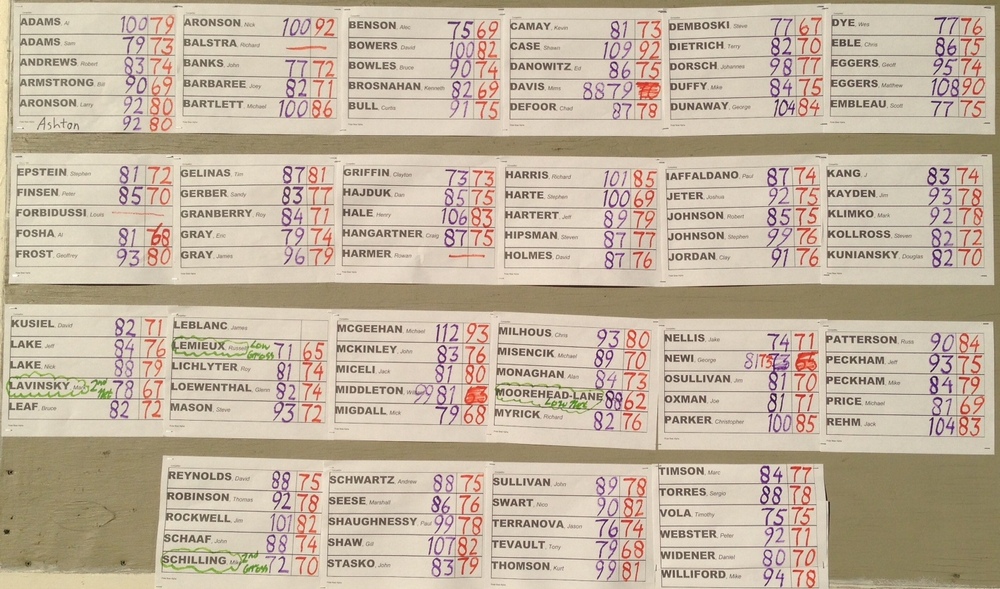 ADAMS, Al 100 79
ADAMS, Sam 79 73
ANDREWS, Robert 83 74
ARMSTRONG, Bill 90 69
ARONSON, Larry 92 80
Ashton 92 80
ARONSON, Nick 100 92
BALSTRA, Richard —
BANKS, John 77 72
BARBAREE, Joey 82 71
BARTLETT, Michael 100 86
BENSON, Alec 75 69
BOWERS, David 100 82
BOWLES, Bruce 90 74
BROSNAHAN, Kenneth 82 69
BULL, Curtis 91 75
CAMAY, Kevin 81 73
CASE, Shawn 109 92
DANOWITZ, Ed 86 75
DAVIS, Mims 88 79
DEFOOR, Chad 87 78
DEMBOSKI, Steve 77 67
DIETRICH, Terry 82 70
DORSCH, Johannes 98 77
DUFFY, Mike 84 75
DUNAWAY, George 104 84
DYE, Wes 77 76
EBLE, Chris 86 75
EGGERS, Geoff 95 74
EGGERS, Matthew 108 90
EMBLEAU, Scott 77 75
EPSTEIN, Stephen 81 72
FINSEN, Peter 85 70
FORBIDUSSI, Louis —
FOSHA, Al 81 68
FROST, Geoffrey 93 80
GELINAS, Tim 87 81
GERBER, Sandy 83 77
GRANBERRY, Roy 84 71
GRAY, Eric 79 74
GRAY, James 96 79
GRIFFIN, Clayton 73 73
HAJDUK, Dan 85 75
HALE, Henry 106 83
HANGARTNER, Craig 87 75
HARMER, Rowan —
HARRIS, Richard 101 85
HARTE, Stephen 100 69
HARTERT, Jeff 89 79
HIPSMAN, Steven 87 77
HOLMES, David 87 76
IAFFALDANO, Paul 87 74
JETER, Joshua 92 75
JOHNSON, Robert 85 75
JOHNSON, Stephen 99 76
JORDAN, Clay 91 76
KANG, J 83 74
KAYDEN, Jim 93 78
KLIMKO, Mark 92 78
KOLLROSS, Steven 82 72
KUNIANSKY, Douglas 82 70
KUSIEL, David 82 71
LAKE, Jeff 84 76
LAKE, Nick 88 79
LAVINSKY, 2nd Net 78 67
LEAF, Bruce 82 72
LEBLANC, James
LEMIEUX, Russell Low Gross 71 65
LICHLYTER, Roy 81 74
LOEWENTHAL, Glenn 82 74
MASON, Steve 93 72
MCGEEHAN, Michael 112 93
MCKINLEY, John 83 76
MICELI, Jack 81 80
MIDDLETON, 99 81
MIGDALL, Mick 79 68
MILHOUS, Chris 93 80
MISENCIK, Michael 89 70
MONAGHAN, Alan 84 73
MOOREHEAD-LANE, Low Net 88 62
MYRICK, Richard 82 76
NELLIS, Jake 74 71
NEWI, George 81 73
OSULLIVAN, Jim 81 70
OXMAN, Joe 81 71
PARKER, Christopher 100 85
PATTERSON, Russ 90 84
PECKHAM, Jeff 93 75
PECKHAM, Mike 84 79
PRICE, Michael 81 69
REHM, Jack 104 83
REYNOLDS, David 88 75
ROBINSON, Thomas 92 78
ROCKWELL, Jim 101 82
SCHAAF, John 88 74
SCHILLING, 2nd Gross 72 70
SCHWARTZ, Andrew 88 75
SEESE, Marshall 86 76
SHAUGHNESSY, Paul 99 78
SHAW, Gil 107 82
STASKO, John 83 79
SULLIVAN, John 89 78
SWART, Nico 90 82
TERRANOVA, Jason 76 74
TEVAULT, Tony 79 68
THOMSON, Kurt 99 81
TIMSON, Marc 84 77
TORRES, Sergio 88 78
VOLA, Timothy 75 75
WEBSTER, Peter 92 71
WIDENER, Daniel 80 70
WILLIFORD, Mike 94 78